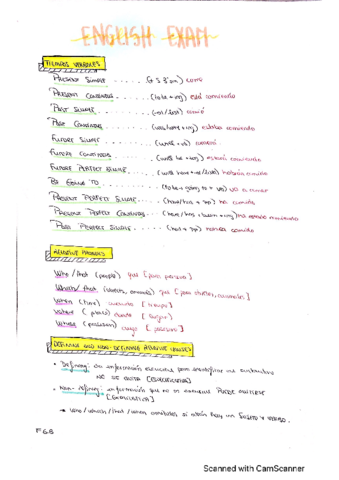 ENGLISH EXAM
TIEMPOS VERBALES
PRESENT SIMPLE ...... como
PRESENT CONTINUOUS ...... (to be + ing) está comiendo
PAST SIMPLE ......
PAST CONTINUOUS ...... (was/were + ing) estaba comiendo
FUTURE SIMPLE ...... comerá
FUTURE CONTINUOUS ...... (will be + ing) estará comiendo
FUTURE PERFECT SIMPLE ...... habrá comido
BE GOING TO ...... (to be + going to + vb) va a comer
PRESENT PERFECT SIMPLE ..... (have/has + pp) ha comido
PRESENT PERFECT CONTINUOUS .... (have/has + been + ing) ha estado comiendo
PAST PERFECT SIMPLE ...... (had + pp) había comido
RELATIVE PRONOUNS
Who / that (people) que [para personas]
Which / that (objects, animals) que [para objetos, animales]
When (time) cuando [tiempo]
Where (places) donde [lugar]
Whose (possession) cuyo [posesivo]
DEFINING AND NON-DEFINING RELATIVE CLAUSES
• Defining: da información esencial para identificar un sustantivo
NO SE QUITA [ESPECIFICATIVA]
• Non-defining: información que no es esencial PUEDE OMITIRSE
[EXPLICATIVA]
→ Who / which / that / when omitidos si atrás hay un SUJETO Y VERBO.
Scanned with CamScanner